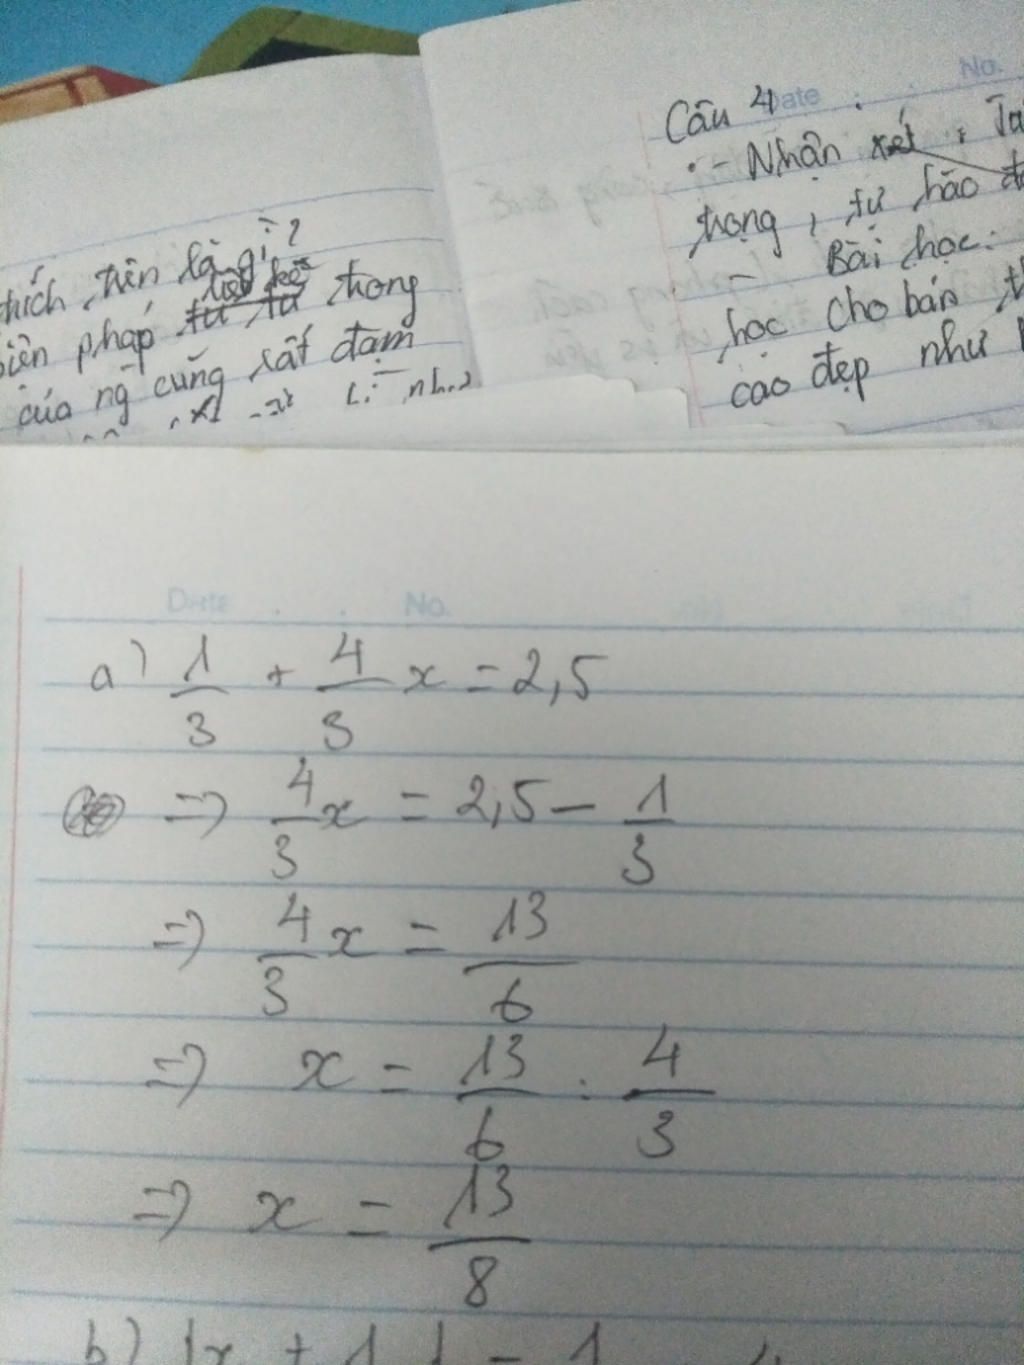 thích trên là gì?
biện pháp liệt kê trong
của ng cũng rất đạm
Date No.
Câu 4
- Nhận xét:
trọng, tự hào
- Bài học:
học cho bản
cao đẹp như
Date . . No.
a) 1/3 + 4/3 x = 2,5
=> 4/3 x = 2,5 - 1/3
=> 4/3 x = 13/6
=> x = 13/6 : 4/3
=> x = 13/8
b) |x + 1